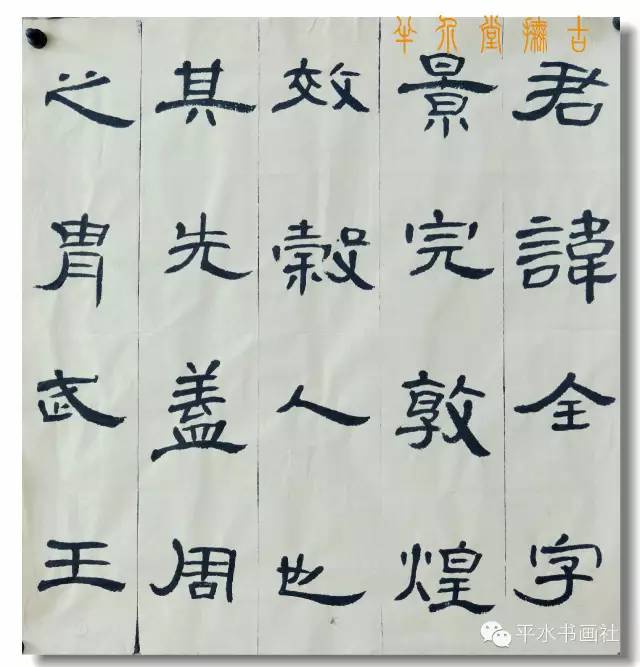 君諱全字
景完敦煌
效穀人也
其先盖周
之胄武王
平水书画社